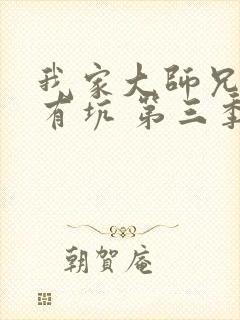 我家大師兄
有坑 第三季
朝賀庵